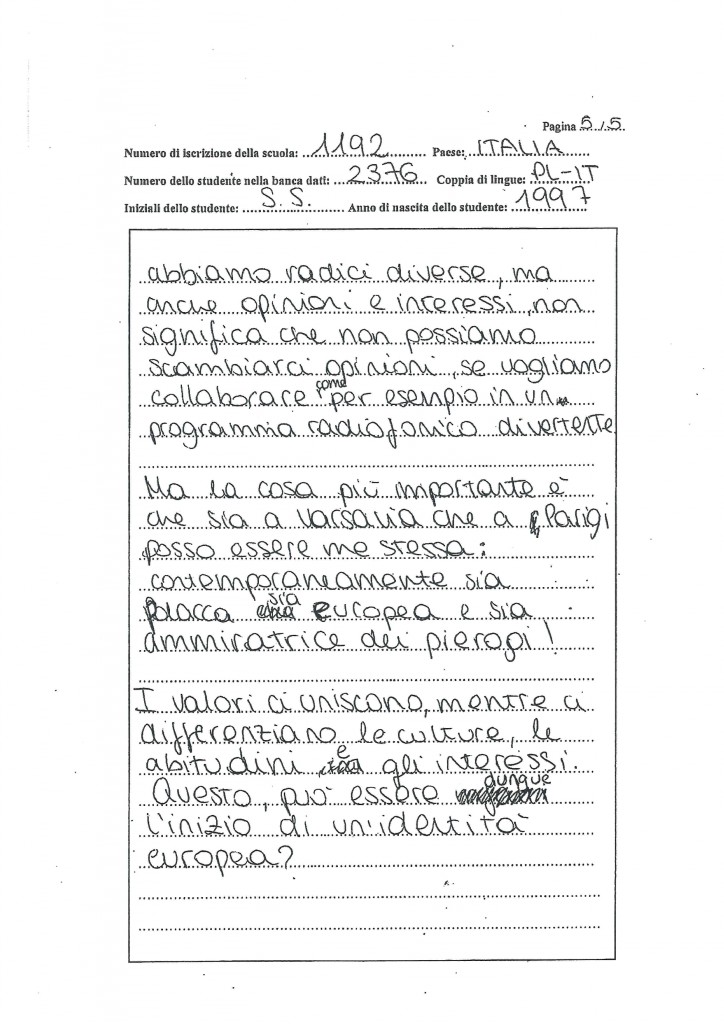 Pagina 5./.5.
Numero di iscrizione della scuola: ...1192.......... Paese:..ITALIA......
Numero dello studente nella banca dati: ...2376...... Coppia di lingue:.PL-IT
Iniziali dello studente: .....S.S............. Anno di nascita dello studente:.1997
abbiamo radici diverse, ma
anche opinioni e interessi, non
significa che non possiamo
scambiarci opinioni, se vogliamo
collaborare come per esempio in un
programma radiofonico divertente
Ma la cosa più importante è
che sia a Varsavia che a Parigi
posso essere me stessa:
contemporaneamente sia
polacca sia europea e sia
ammiratrice dei pierogi!
I valori ci uniscono, mentre ci
differenziano le culture, le
abitudini e gli interessi.
Questo, può essere dunque
l'inizio di un'identità
europea?